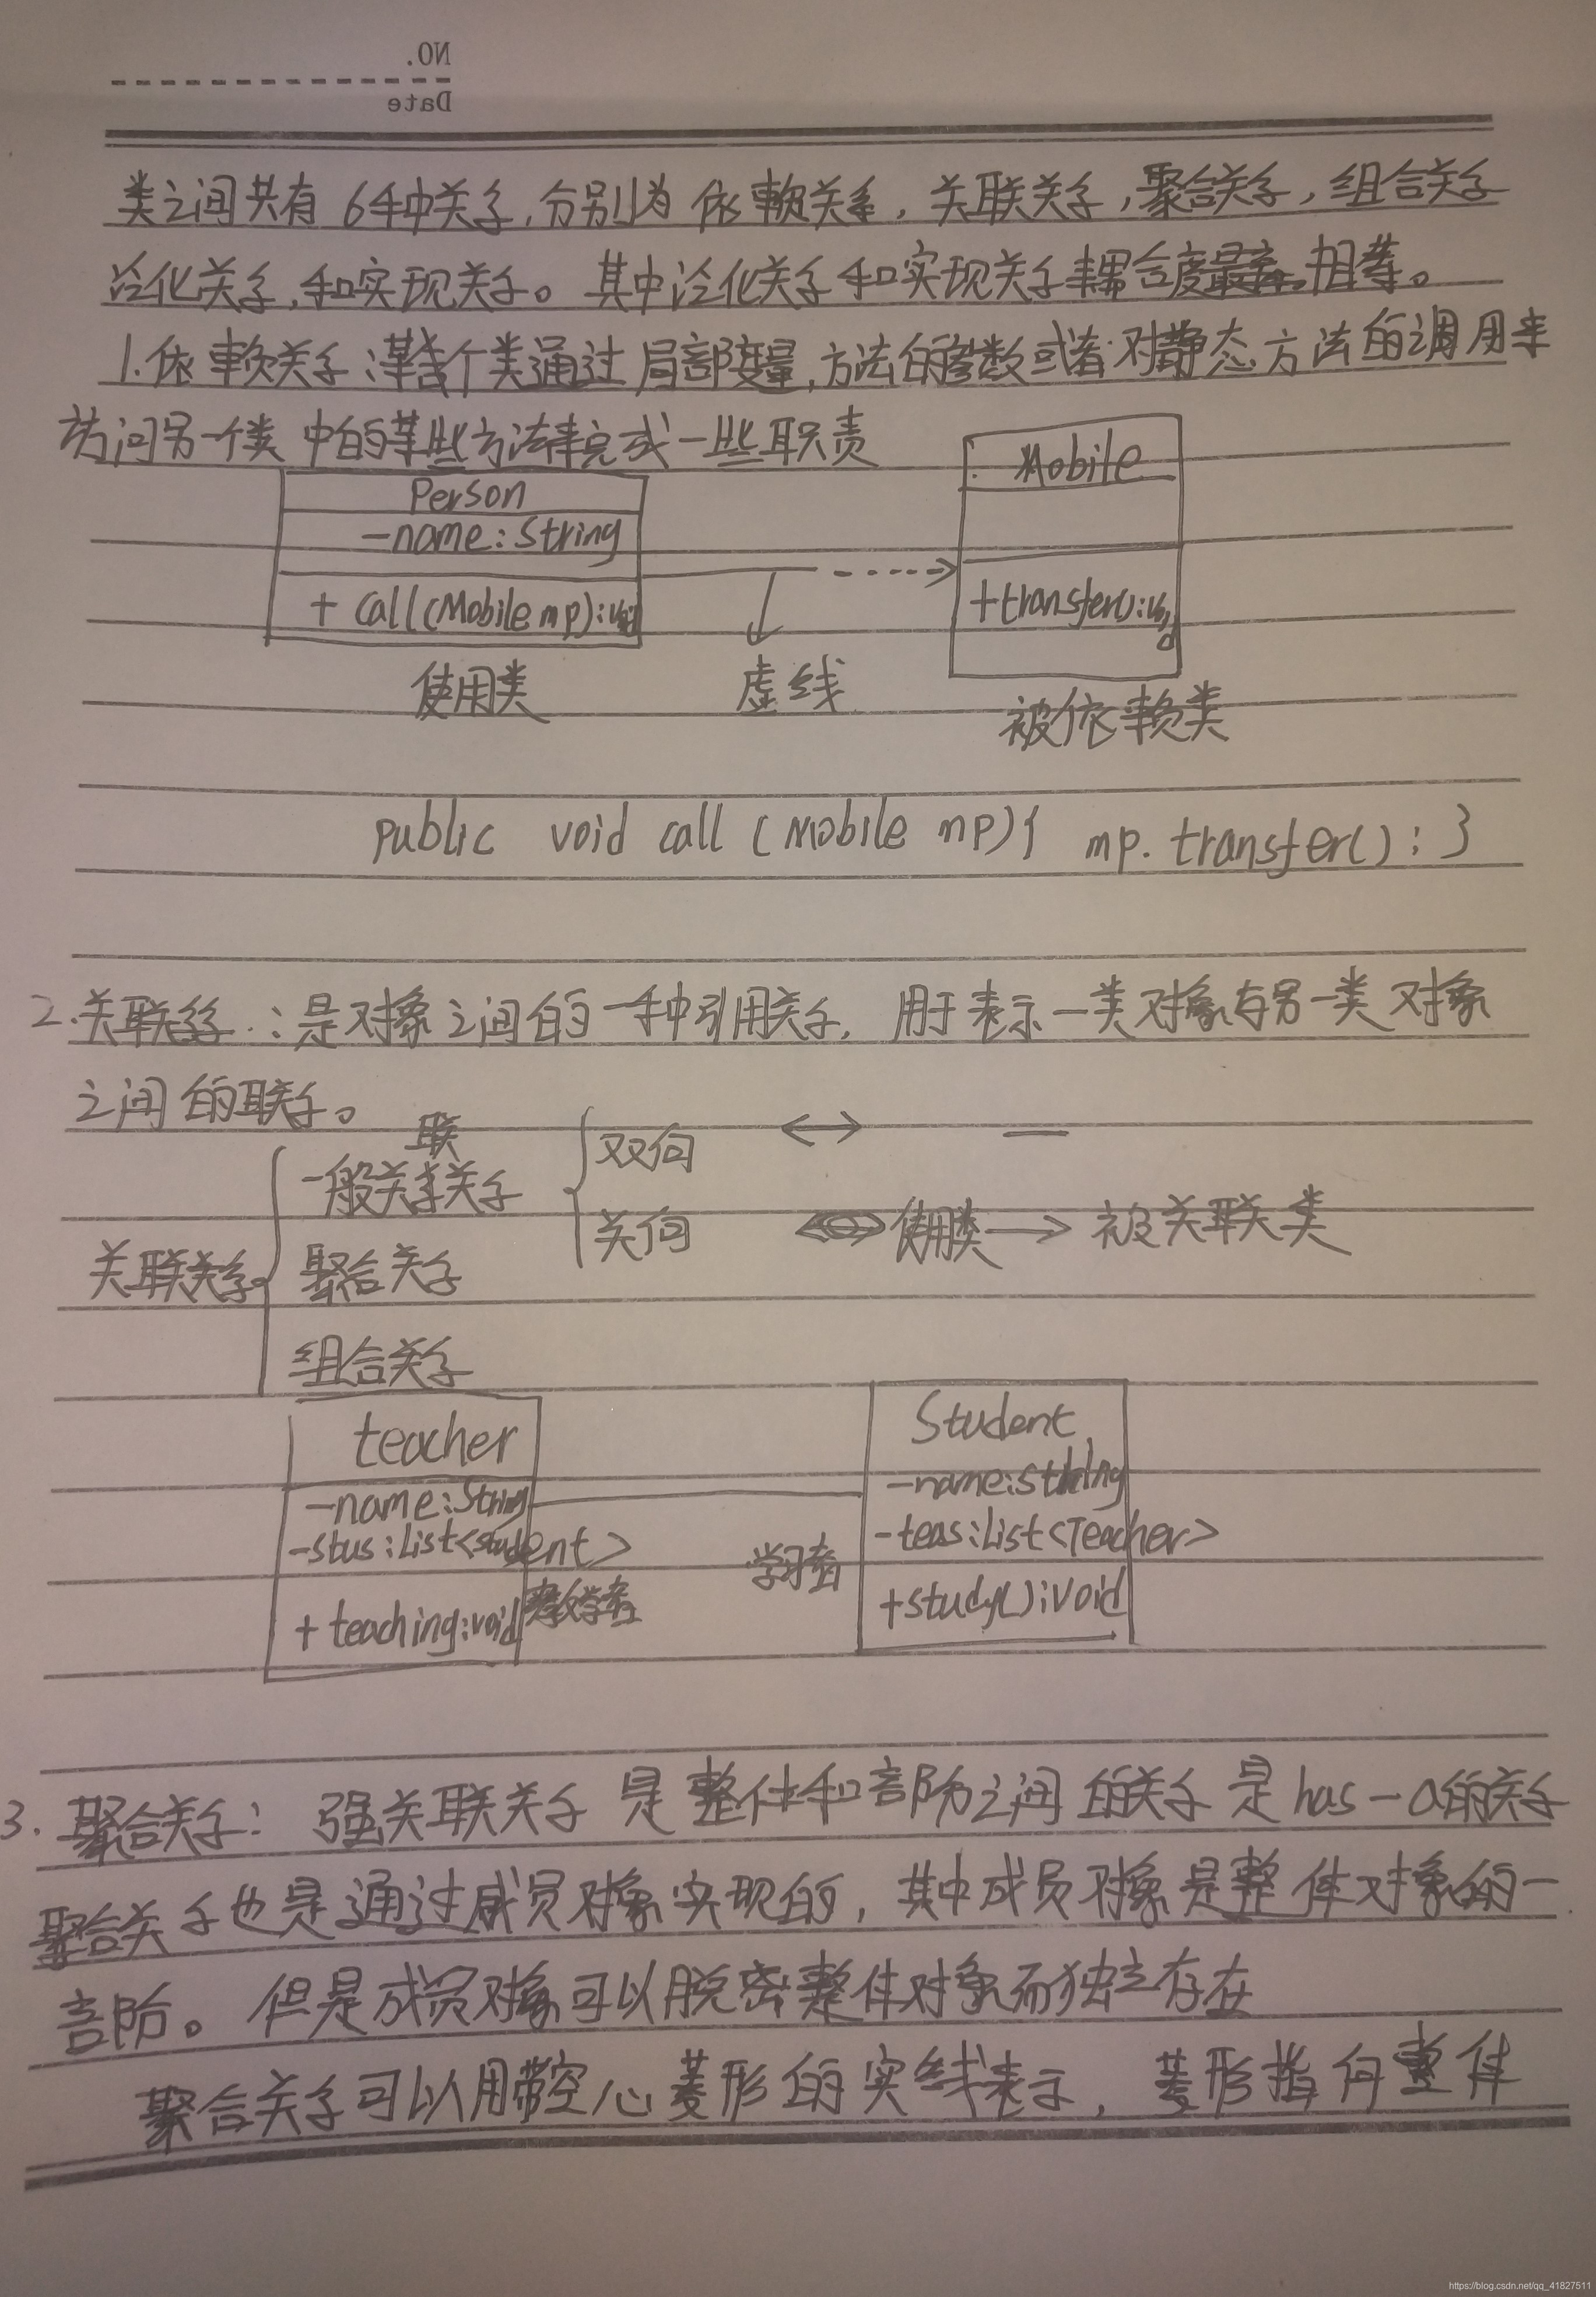 NO.
Date
类之间共有6种关系,分别为 依赖关系, 关联关系, 聚合关系, 组合关系
泛化关系,和实现关系。其中泛化关系和实现关系耦合度相等。
1.依赖关系:某个类通过局部变量,方法的参数或者对静态方法的调用来
访问另一个类中的某些方法来完成一些职责
Person
Mobile
-name:String
+ call(Mobile mp):void
+transfer():void
使用类
虚线
被依赖类
public void call (Mobile mp){ mp. transfer(); }
2.关联关系:是对象之间的一种引用关系, 用于表示一类对象与另一类对象
之间的联系。
关联关系
一般关联关系
双向 ↔ —
关向 使用类 → 被关联类
聚合关系
组合关系
teacher
Student
-name:String
-name:String
-stus:List<student>
-teas:List<Teacher>
学习者
+ teaching:void
教学者
+study():void
3. 聚合关系: 强关联关系 是整体和部分之间的关系 是has-a的关系
聚合关系也是通过成员对象实现的, 其中成员对象是整体对象的一
部分。但是成员对象可以脱离整体对象而独立存在
聚合关系可以用带空心菱形的实线表示, 菱形指向整体
https://blog.csdn.net/qq_41827511